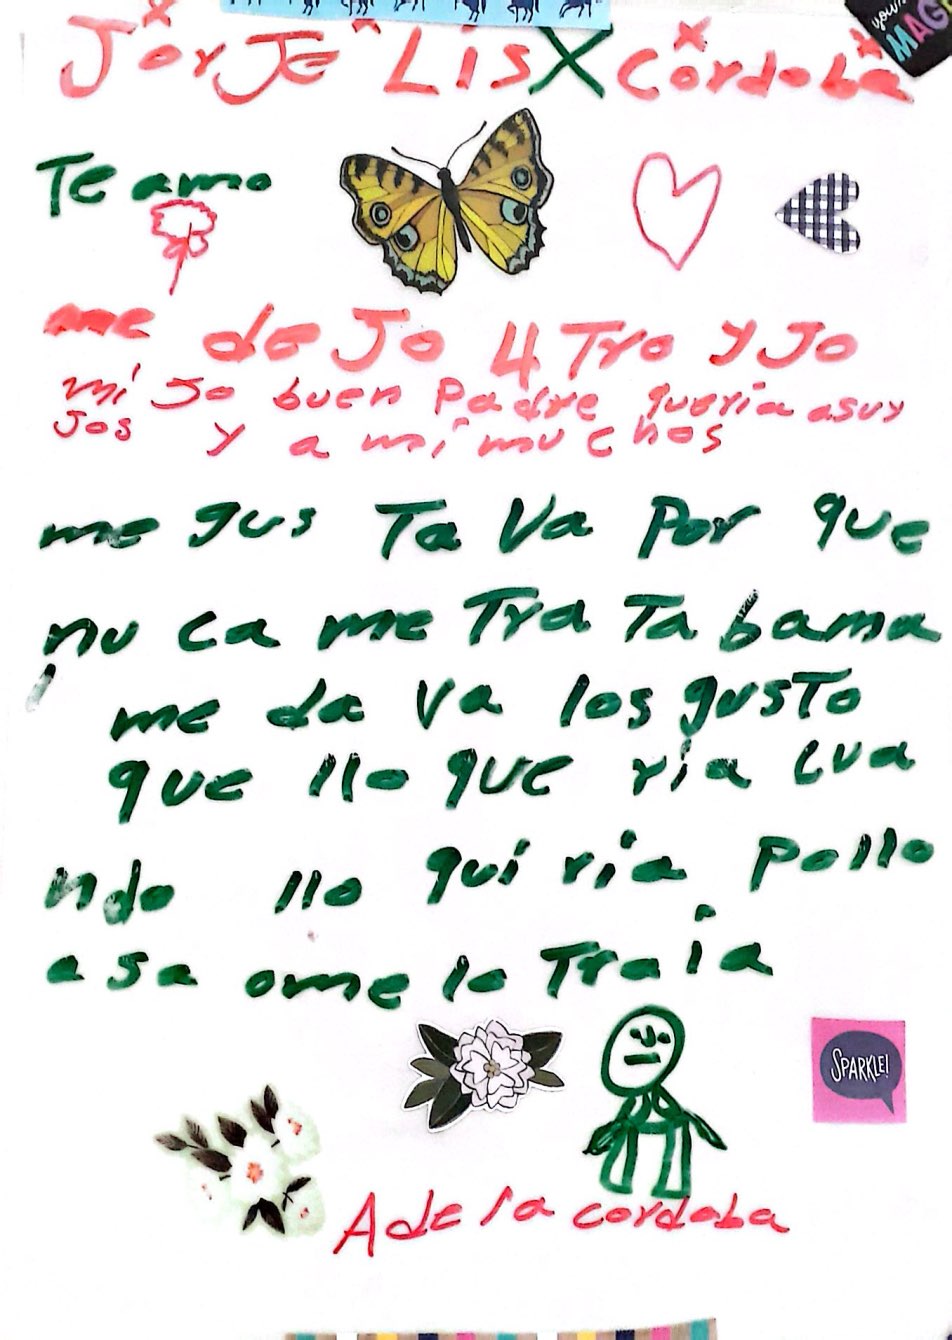 JorJe Lis X Cordoba
your
MAG
Te amo
me de Jo 4 Tro y Jo
mi Jo buen Padre queria asuy
Jos y a mi mu c hos
me gus Ta Va Por que
nu ca me Tra Ta bama
me da Va los gusTo
que llo que ria cua
ndo llo qui ria Pollo
asa ome lo Traia
SPARKLE!
Ade la cordoba